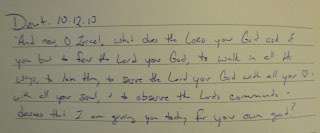 Deut. 10:12,13
"And now, O Israel, what does the Lord your God ask of
you but to fear the Lord your God, to walk in all His
ways, to love Him, to serve the Lord your God with all your ♡
with all your soul, & to observe the Lord's commands &
decrees that I am giving you today for your own good?